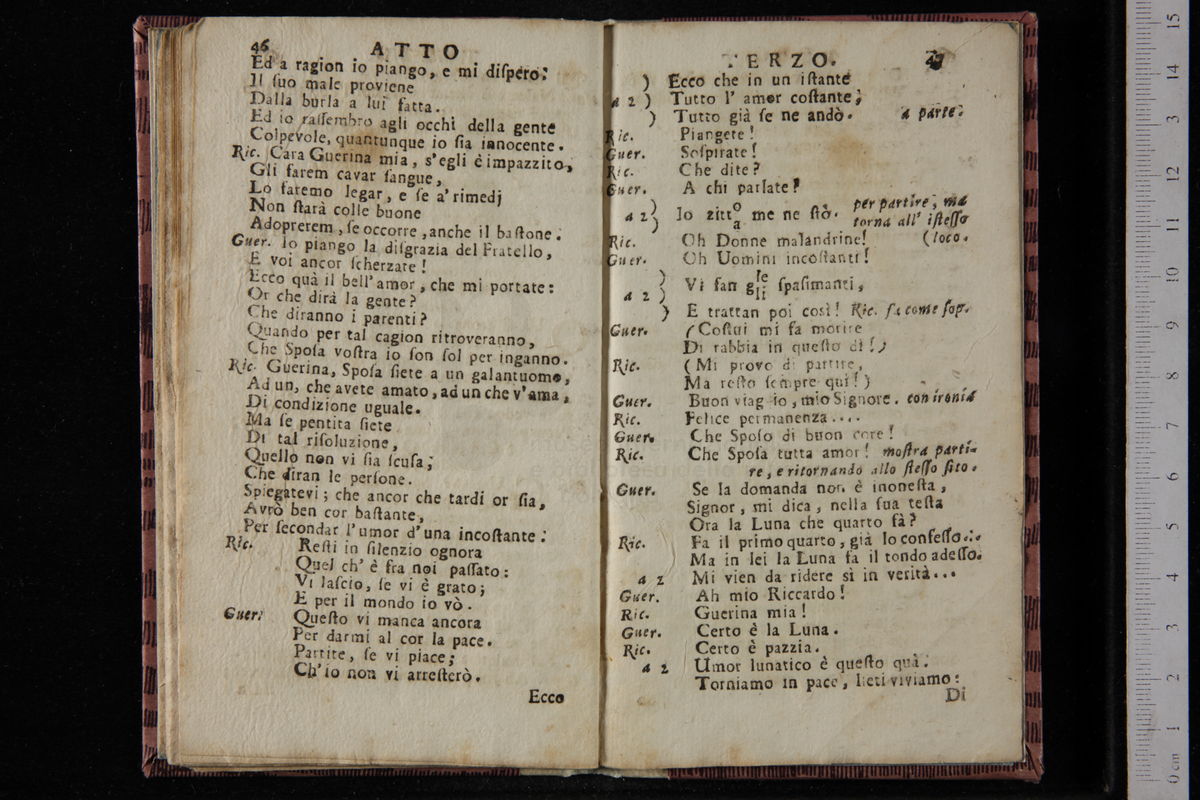 46 ATTO
Ed a ragion io piango, e mi diſpero:
Il ſuo male proviene
Dalla burla a lui fatta.
Ed io raſſembro agli occhi della gente
Colpevole, quantunque io ſia innocente.
Ric. Cara Guerina mia, s'egli è impazzito,
Gli farem cavar ſangue,
Lo faremo legar, e ſe a' rimedj
Non ſtarà colle buone
Adoprerem, ſe occorre, anche il baſtone.
Guer. Io piango la diſgrazia del Fratello,
E voi ancor ſcherzate!
Ecco quà il bell' amor, che mi portate:
Or che dirà la gente?
Che diranno i parenti?
Quando per tal cagion ritroveranno,
Che Spoſa voſtra io ſon ſol per inganno.
Ric. Guerina, Spoſa ſiete a un galantuomo,
Ad un, che avete amato, ad un che v'ama,
Di condizione uguale.
Ma ſe pentita ſiete
Di tal riſoluzione,
Quello non vi ſia ſcuſa;
Che diran le perſone.
Spiegatevi; che ancor che tardi or ſia,
Avrò ben cor baſtante,
Per ſecondar l'umor d'una incoſtante.
Ric. Reſti in ſilenzio ognora
Quel ch' è fra noi paſſato:
Vi laſcio, ſe vi è grato;
E per il mondo io vò.
Guer. Queſto vi manca ancora
Per darmi al cor la pace.
Partite, ſe vi piace;
Ch'io non vi arreſterò.
Ecco
TERZO. 47
) Ecco che in un iſtante
a 2 ) Tutto l' amor coſtante;
) Tutto già ſe ne andò. a parte.
Ric. Piangete!
Guer. Soſpirate!
Ric. Che dite?
Guer. A chi parlate?
a 2 ) Io zitt o a me ne ſtò. per partire, ma
torna all' iſteſſo
Ric. Oh Donne malandrine! (loco.
Guer. Oh Uomini incoſtanti!
a 2 ) Vi fan gl'le li ſpaſimanti,
) E trattan poi così! Ric. fa come ſop.
Guer. (Coſtui mi fa morire
Di rabbia in queſto dì!)
Ric. (Mi provo di partire,
Ma reſto ſempre qui!)
Guer. Buon viaggio, mio Signore. con ironia
Ric. Felice permanenza....
Guer. Che Spoſo di buon core!
Ric. Che Spoſa tutta amor! moſtra parti-
re, e ritornando allo ſteſſo ſito.
Guer. Se la domanda non è inoneſta,
Signor, mi dica, nella ſua teſta
Ora la Luna che quarto fà?
Ric. Fa il primo quarto, già lo confeſſo...
Ma in lei la Luna fa il tondo adeſſo.
a 2 Mi vien da ridere sì in verità...
Guer. Ah mio Riccardo!
Ric. Guerina mia!
Guer. Certo è la Luna.
Ric. Certo è pazzia.
a 2 Umor lunatico è queſto quà.
Torniamo in pace, lieti viviamo:
Di
15
14
13
12
11
10
9
8
7
6
5
4
3
2
1
0 cm